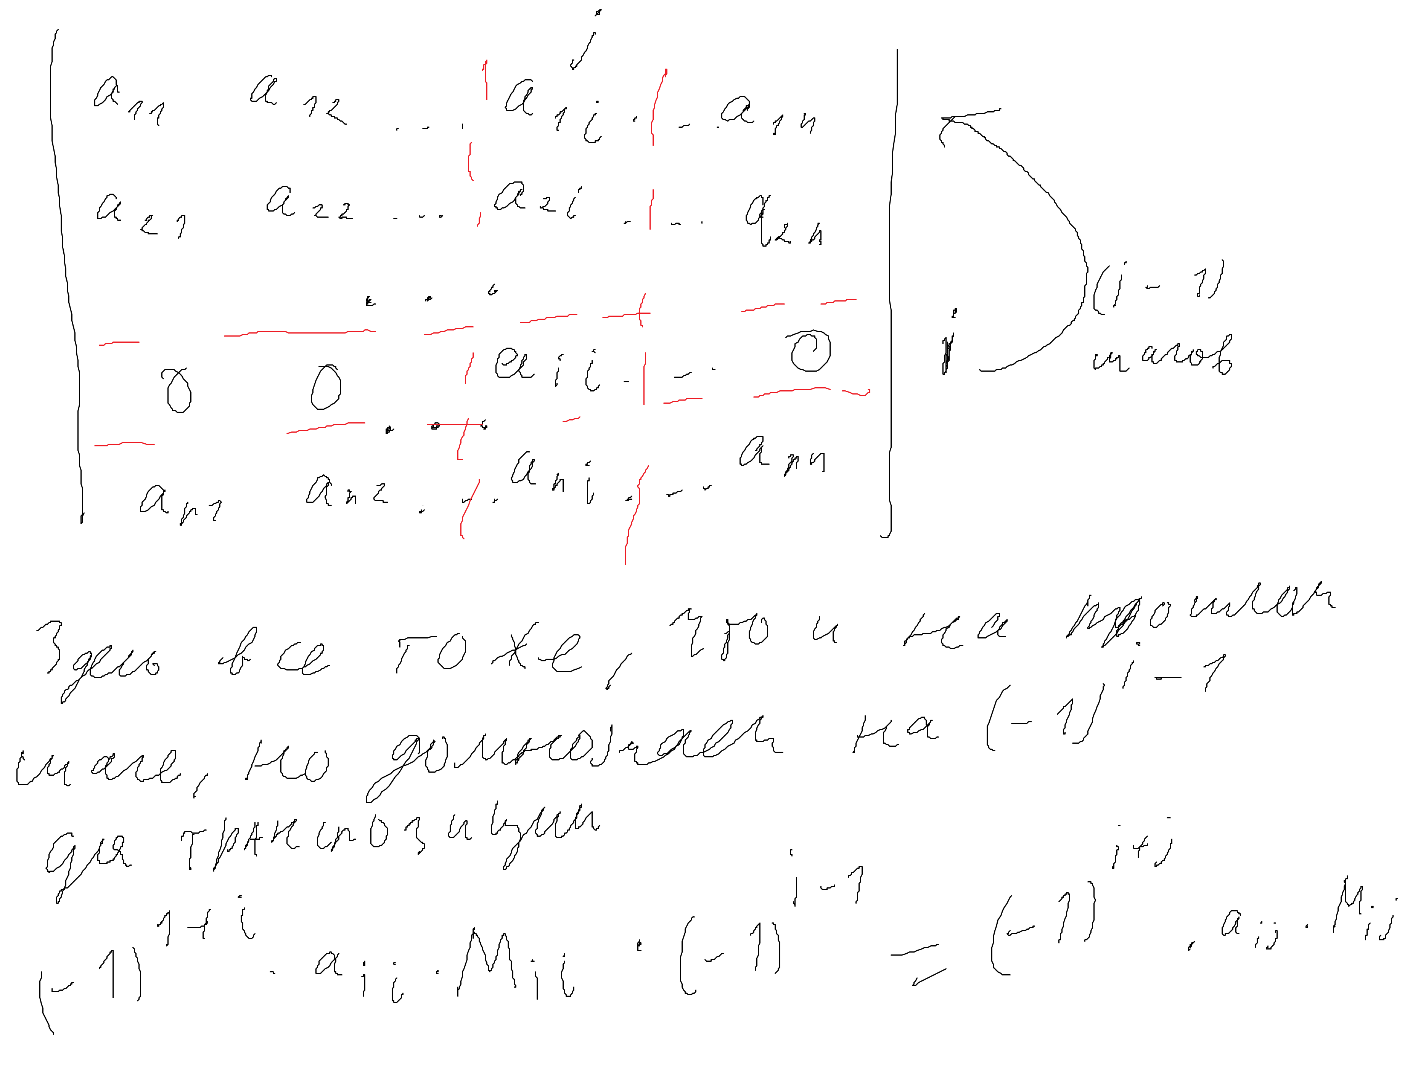 j
a₁₁ a₁₂ ... a₁ⱼ ... a₁ₙ
a₂₁ a₂₂ ... a₂ⱼ ... a₂ₙ
...
0 0 aᵢⱼ ... 0 i (i - 1)
шагов
...
aₙ₁ aₙ₂ ... aₙⱼ ... aₙₙ
Здесь все тоже, что и на прошлом
шаге, но домножаем на (-1)^{i-1}
для транспозиции
(-1)^{1+j} · aᵢⱼ · Mᵢⱼ · (-1)^{i-1} = (-1)^{i+j} · aᵢⱼ · Mᵢⱼ